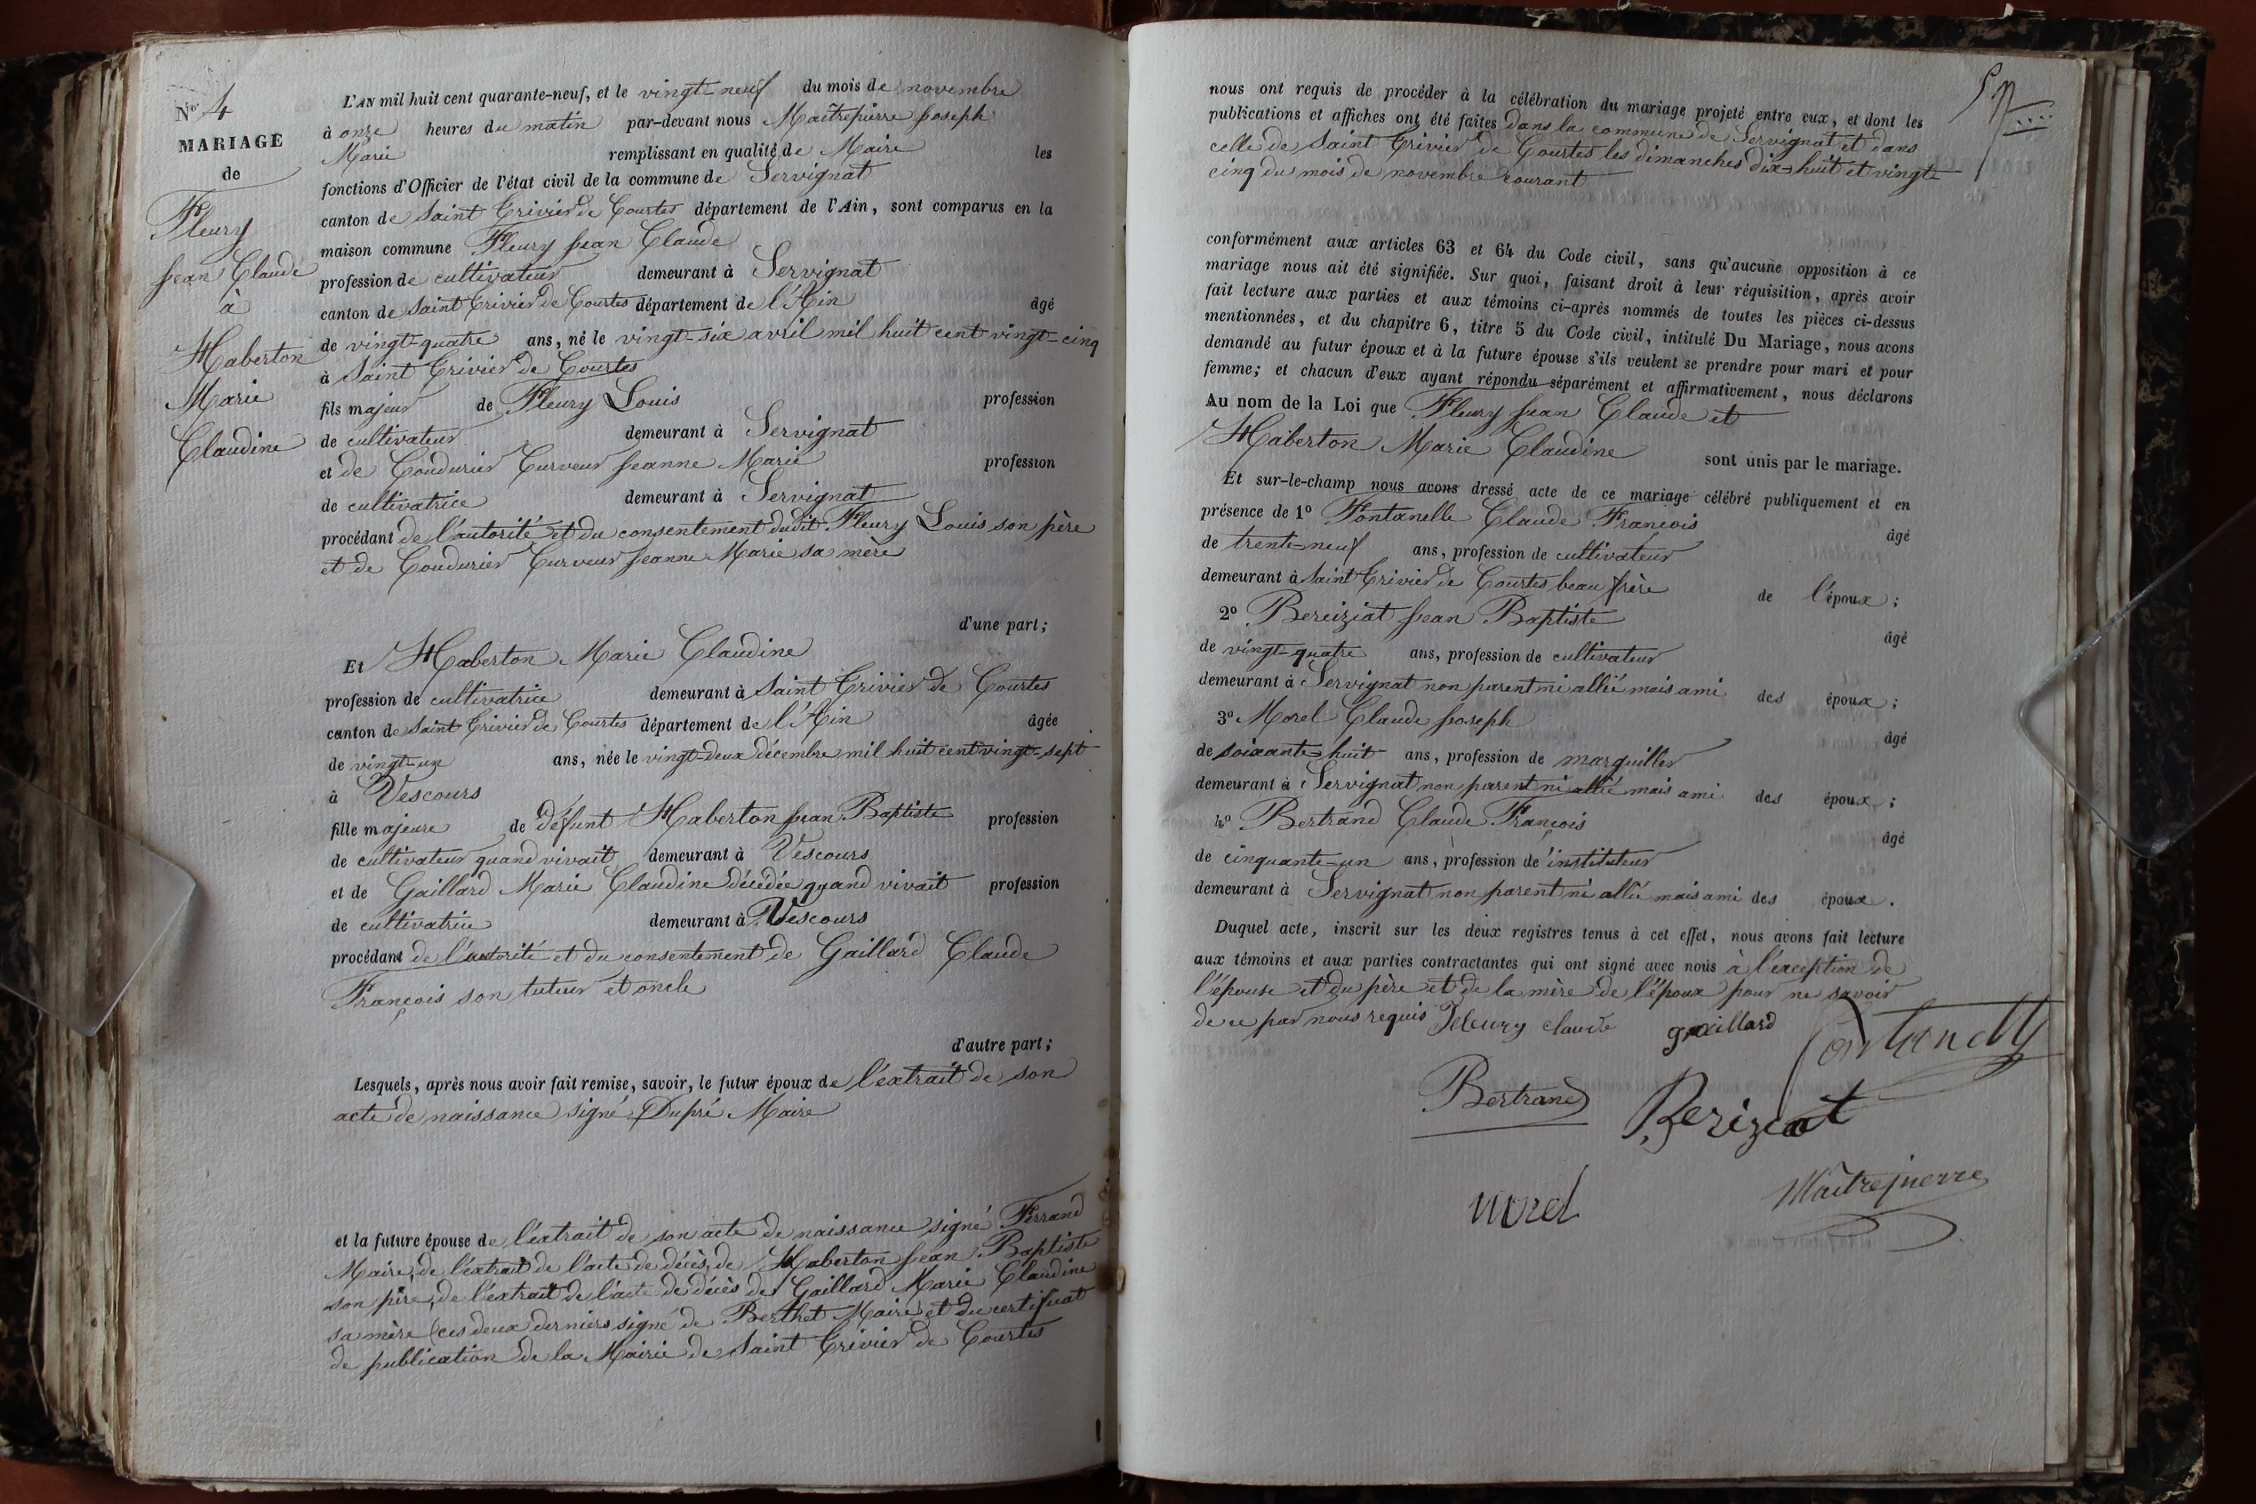 N° 4
MARIAGE
de
Fleury
Jean Claude
à
Haberton
Marie
Claudine
L'AN mil huit cent quarante-neuf, et le vingt-neuf du mois de novembre
à onze heures du matin par-devant nous Maîtrepierre Joseph
Marie remplissant en qualité de Maire les
fonctions d'Officier de l'état civil de la commune de Servignat
canton de Saint Trivier de Courtes département de l'Ain, sont comparus en la
maison commune Fleury Jean Claude
profession de cultivateur demeurant à Servignat
canton de Saint Trivier de Courtes département de l'Ain âgé
de vingt-quatre ans, né le vingt-six avril mil huit cent vingt-cinq
à Saint Trivier de Courtes
fils majeur de Fleury Louis profession
de cultivateur demeurant à Servignat
et de Coudurier Curveur Jeanne Marie profession
de cultivatrice demeurant à Servignat
procédant de l'autorité et du consentement dudit Fleury Louis son père
et de Coudurier Curveur Jeanne Marie sa mère
d'une part;
Et Haberton Marie Claudine
profession de cultivatrice demeurant à Saint Trivier de Courtes
canton de Saint Trivier de Courtes département de l'Ain âgée
de vingt-un ans, née le vingt-deux décembre mil huit cent vingt-sept
à Vescours
fille majeure de défunt Haberton Jean Baptiste profession
de cultivateur quand vivait demeurant à Vescours
et de Gaillard Marie Claudine décédée quand vivait profession
de cultivatrice demeurant à Vescours
procédant de l'autorité et du consentement de Gaillard Claude
François son tuteur et oncle
d'autre part;
Lesquels, après nous avoir fait remise, savoir, le futur époux de l'extrait de son
acte de naissance signé Dupré Maire
et la future épouse de l'extrait de son acte de naissance signé Ferrand
Maire, de l'extrait de l'acte de décès de Haberton Jean Baptiste
son père, de l'extrait de l'acte de décès de Gaillard Marie Claudine
sa mère (ces deux derniers signé de Berthet Maire) et du certificat
de publication de la Mairie de Saint Trivier de Courtes
nous ont requis de procéder à la célébration du mariage projeté entre eux, et dont les
publications et affiches ont été faites dans la commune de Servignat et dans
celle de Saint Trivier de Courtes les dimanches dix-huit et vingt
cinq du mois de novembre courant
conformément aux articles 63 et 64 du Code civil, sans qu'aucune opposition à ce
mariage nous ait été signifiée. Sur quoi, faisant droit à leur réquisition, après avoir
fait lecture aux parties et aux témoins ci-après nommés de toutes les pièces ci-dessus
mentionnées, et du chapitre 6, titre 5 du Code civil, intitulé Du Mariage, nous avons
demandé au futur époux et à la future épouse s'ils veulent se prendre pour mari et pour
femme; et chacun d'eux ayant répondu séparément et affirmativement, nous déclarons
Au nom de la Loi que Fleury Jean Claude et
Haberton Marie Claudine sont unis par le mariage.
Et sur-le-champ nous avons dressé acte de ce mariage célébré publiquement et en
présence de 1° Fontanelle Claude François âgé
de trente-neuf ans, profession de cultivateur
demeurant à Saint Trivier de Courtes beau frère de l'époux;
2° Bereiziat Jean Baptiste âgé
de vingt-quatre ans, profession de cultivateur
demeurant à Servignat non parent ni allié mais ami des époux;
3° Morel Claude Joseph âgé
de soixante-huit ans, profession de marguiller
demeurant à Servignat non parent ni allié mais ami des époux;
4° Bertrand Claude François âgé
de cinquante-un ans, profession de instituteur
demeurant à Servignat non parent ni allié mais ami des époux.
Duquel acte, inscrit sur les deux registres tenus à cet effet, nous avons fait lecture
aux témoins et aux parties contractantes qui ont signé avec nous à l'exception de
l'épouse et du père et de la mère de l'époux pour ne savoir
de ce par nous requis Fleury claude gaillard
Bertrand Bereziat
morel Maîtrepierre